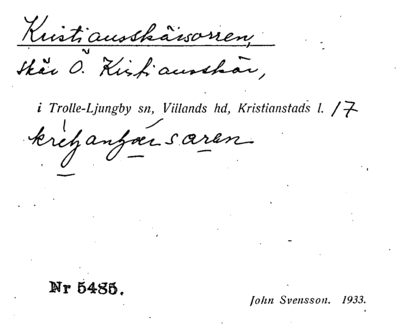 Kristiansskärsorren,
skär Ö. Kristiansskär,
i Trolle-Ljungby sn, Villands hd, Kristianstads l. 17
Nr 5485.
John Svensson. 1933.